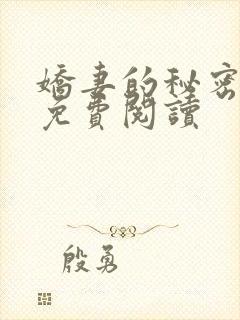 嬌妻的秘密
免費閱讀
殷勇